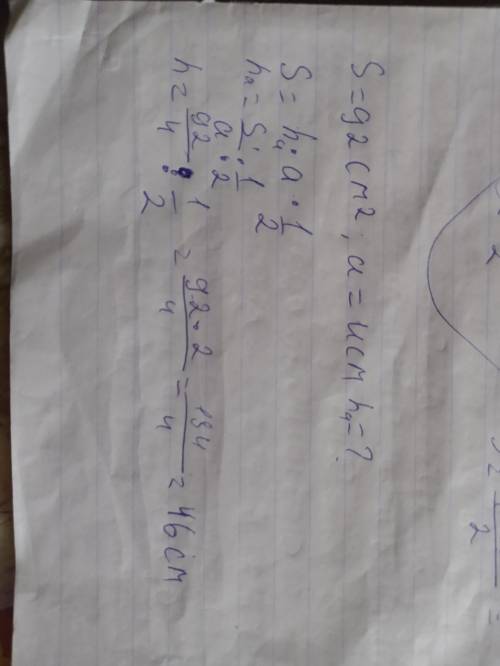 S = 92 см², a = 4 см hₐ = ?
S = hₐ · a · 1/2
hₐ = S/a : 1/2
h = 92/4 : 1/2 = 92·2/4 = 194/4 = 46 см
2
2 =